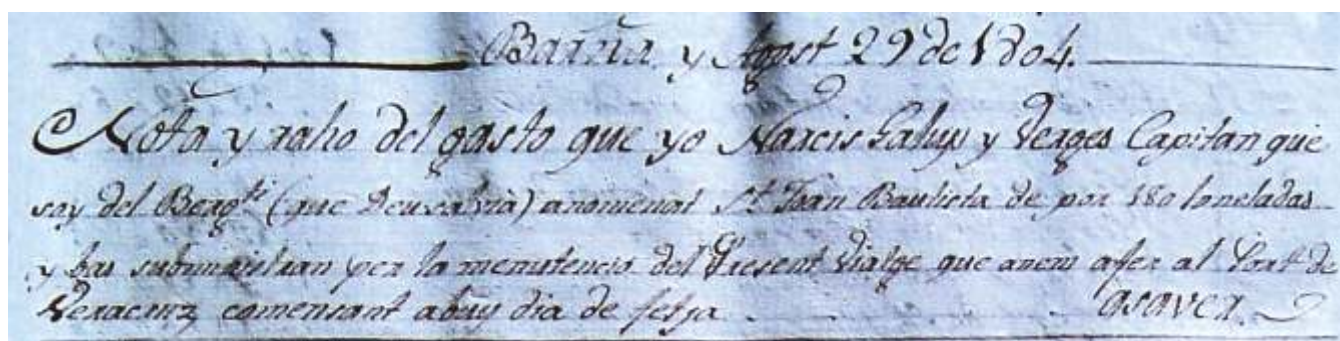 Barña. y Agost 29 de 1804.
Nota y raho del gasto que yo Narcis Galup y Verges Capitan que
soy del Bergtí (que Deu salvia) anomenat St. Joan Bautista de por 180 toneladas
y bas per la del Present Viatge que anem afer al Port de
Veracruz comensant abuy dia de fetja asaver.